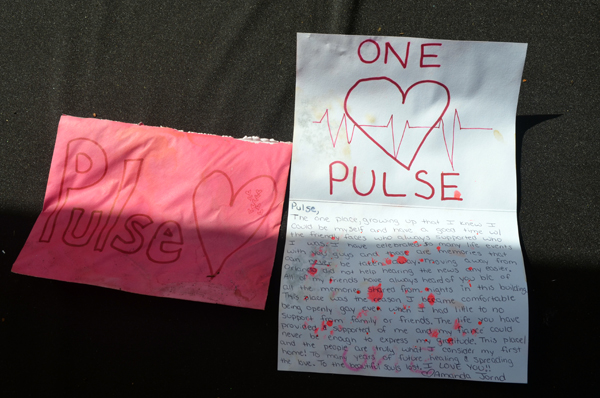 Pulse
ONE
PULSE
Pulse,
The one place, growing up that I knew I
could be myself and have a good time w/
the friendly faces who always supported who
I was. I have celebrated so many life events
with you guys and have memories that
can never be taken away. Moving away from
Orlando did not help hearing the news any easier.
All of my friends have always heard of you b/c of
all the memories shared from nights in this building.
This place was the reason I became comfortable
being openly gay even when I had little to no
support from family or friends. The life you have
provided & supported of me and my fiancé could
never be enough to express my gratitude. This place
and the people are truly what I consider my first
home! To many years of future healing & spreading
the love. To the beautiful souls lost, I LOVE YOU!!
Amanda